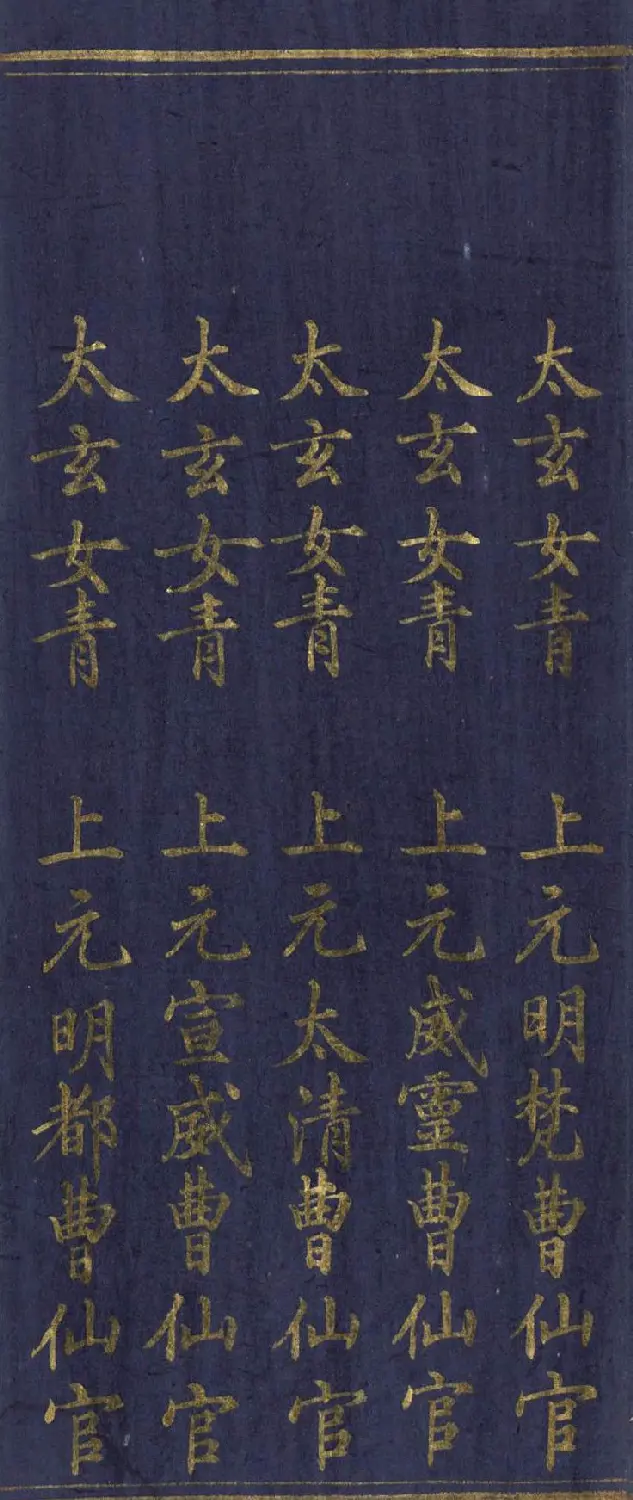 太玄女青上元明梵曹仙官
太玄女青上元威靈曹仙官
太玄女青上元太清曹仙官
太玄女青上元宣威曹仙官
太玄女青上元明都曹仙官